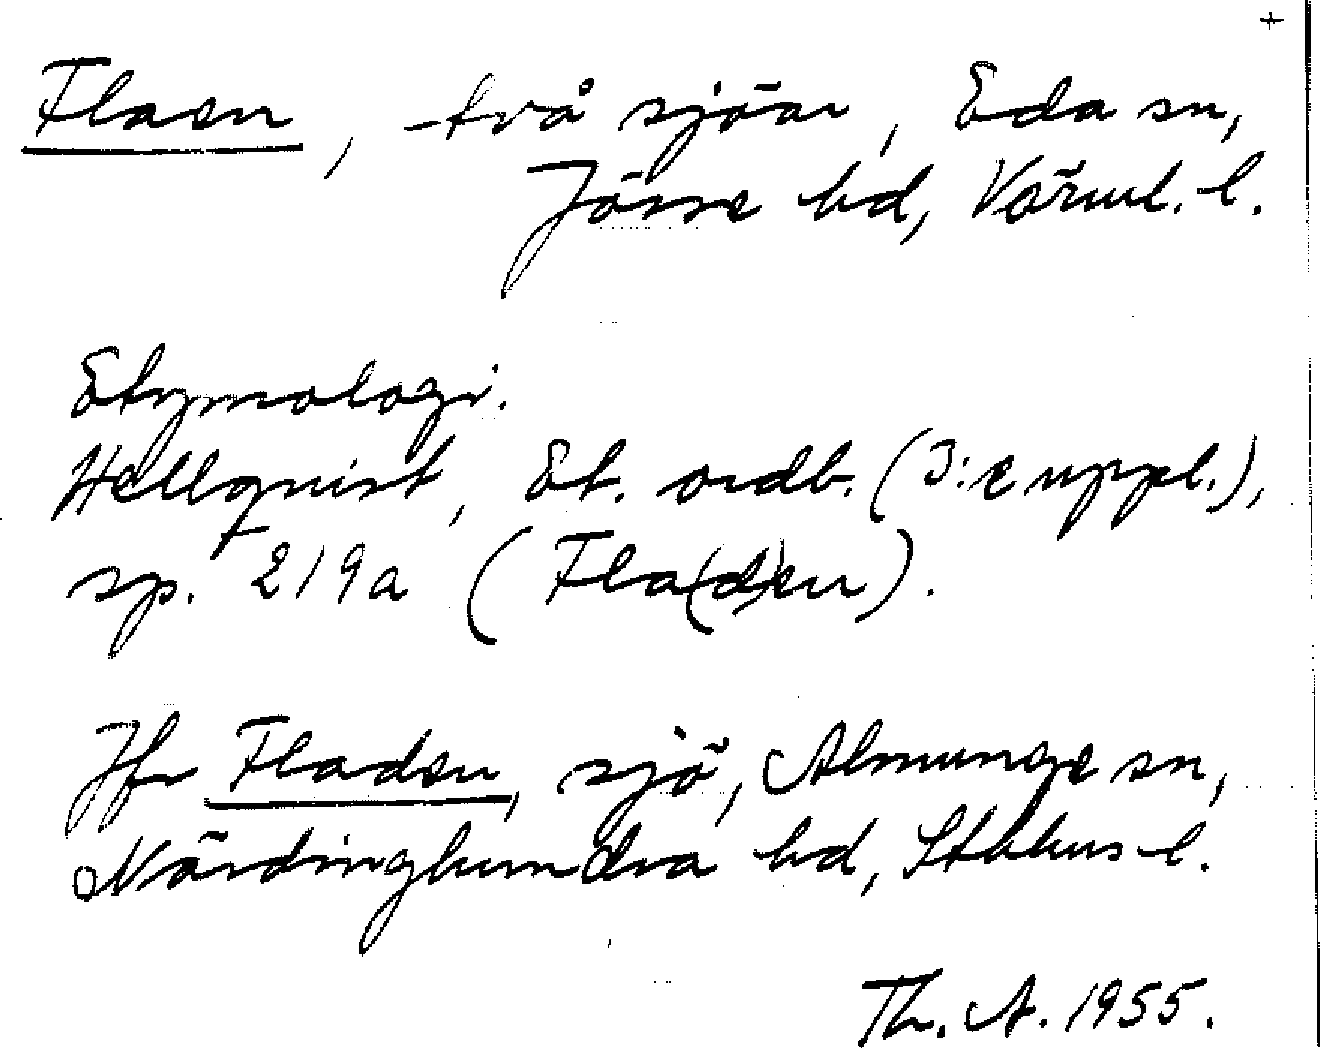 +
Flaen, två sjöar, Eda sn,
Jösse hd, Värml. l.
Etymologi.
Hellquist, Et. ordb. (3:e uppl.),
sp. 219a (Fla(d)en).
Jfr Fladen, sjö, Almunge sn,
Närdinghundra hd, Sthlms l.
Th. A. 1955.